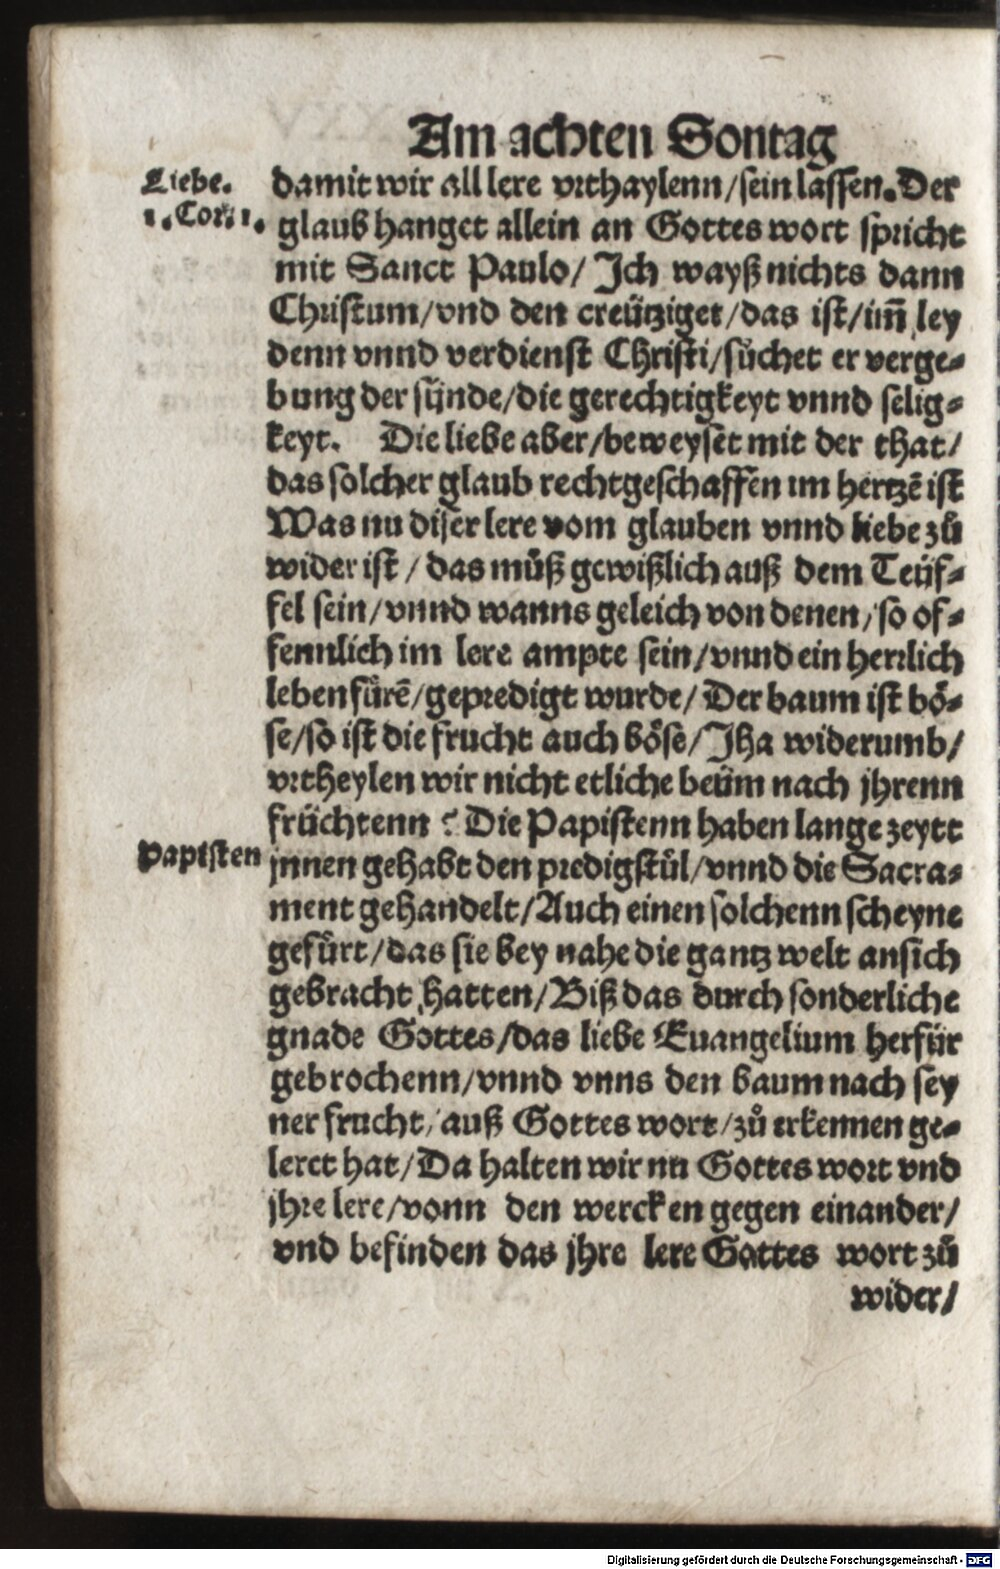 Am achten Sontag
Liebe.
1. Cor. 1.
damit wir all lere vrthaylenn/sein lassen. Der
glaub hanget allein an Gottes wort spricht
mit Sanct Paulo/ Ich wayß nichts dann
Christum/vnd den creütziget/das ist/im̃ ley
denn vnnd verdienst Christi/sůchet er verge⸗
bung der sünde/die gerechtigkeyt vnnd selig⸗
keyt. Die liebe aber/beweyset mit der that/
das solcher glaub rechtgeschaffen im hertzẽ ist
Was nu diser lere vom glauben vnnd liebe zů
wider ist/ das můß gewißlich auß dem Teüf⸗
fel sein/vnnd wanns geleich von denen/so of⸗
fennlich im lere ampte sein/vnnd ein herrlich
leben fůrẽ/gepredigt wurde/ Der baum ist bö⸗
se/so ist die frucht auch böse/Jha widerumb/
vrtheylen wir nicht etliche beüm nach jhrenn
früchtenn? Die Papistenn haben lange zeytt
Papisten
jnnen gehabt den predigstůl/vnnd die Sacra⸗
ment gehandelt/Auch einen solchenn scheyne
gefůrt/das sie bey nahe die gantz welt ansich
gebracht hatten/Biß das durch sonderliche
gnade Gottes/das liebe Euangelium herfür
gebrochenn/vnnd vnns den baum nach sey
ner frucht/ auß Gottes wort/zů erkennen ge⸗
leret hat/Da halten wir nu Gottes wort vnd
jhre lere/vonn den wercken gegen einander/
vnd befinden das jhre lere Gottes wort zů
wider/
Digitalisierung gefördert durch die Deutsche Forschungsgemeinschaft - DFG